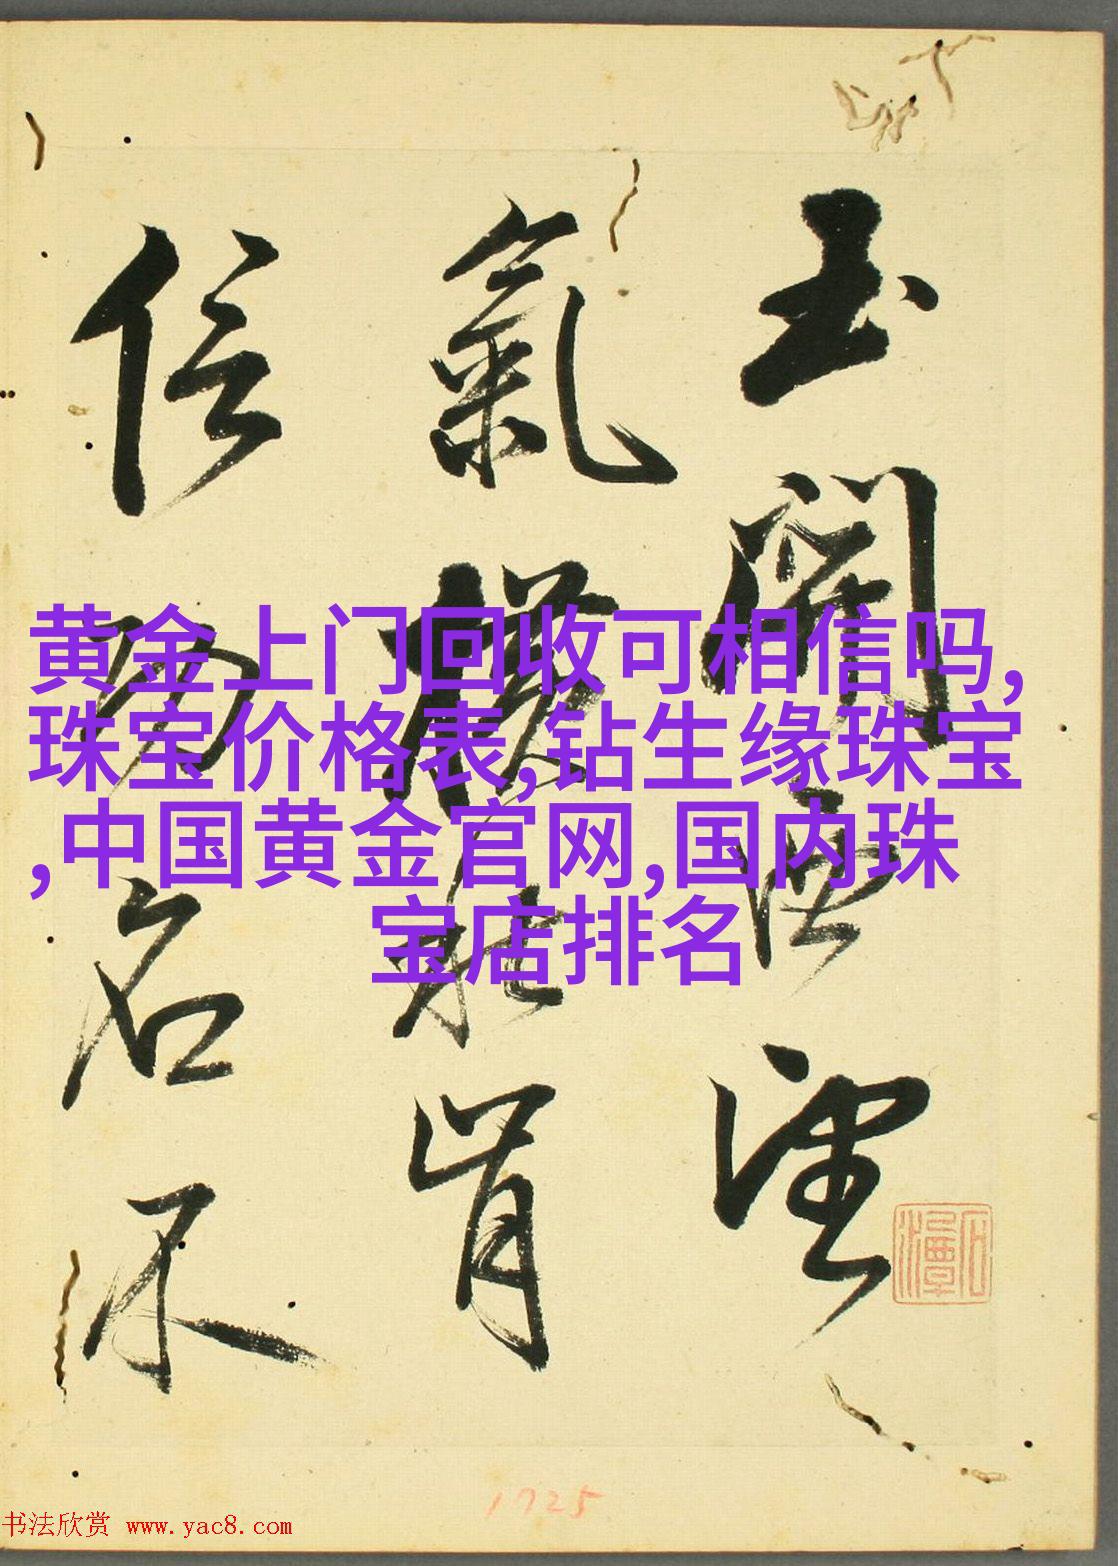 玉關西望
氣橫秋肯
信功名不
黄金上门回收可相信吗,
珠宝价格表,钻生缘珠宝
,中国黄金官网,国内珠
宝店排名
石潭
1725
书法欣赏 www.yac8.com